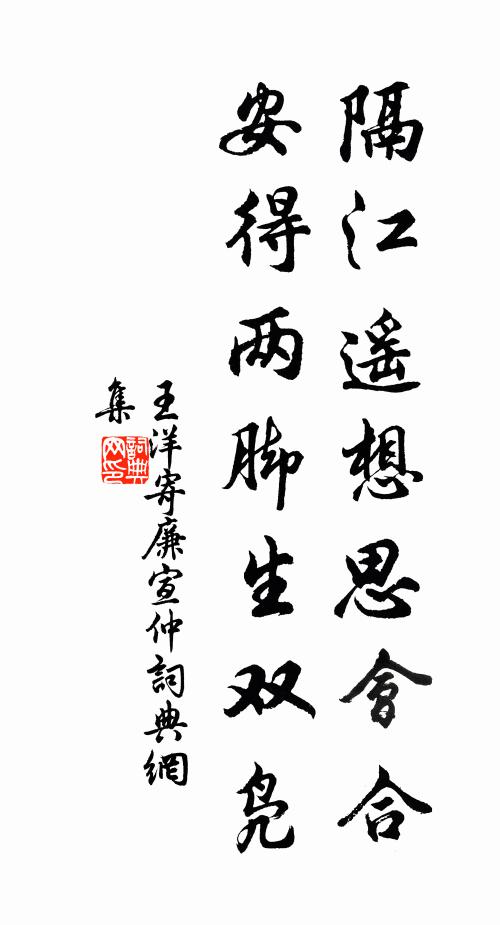 隔江遥想思會合
安得两脚生双凫
王洋寄廉宣仲詞典網
集
詞典
网印